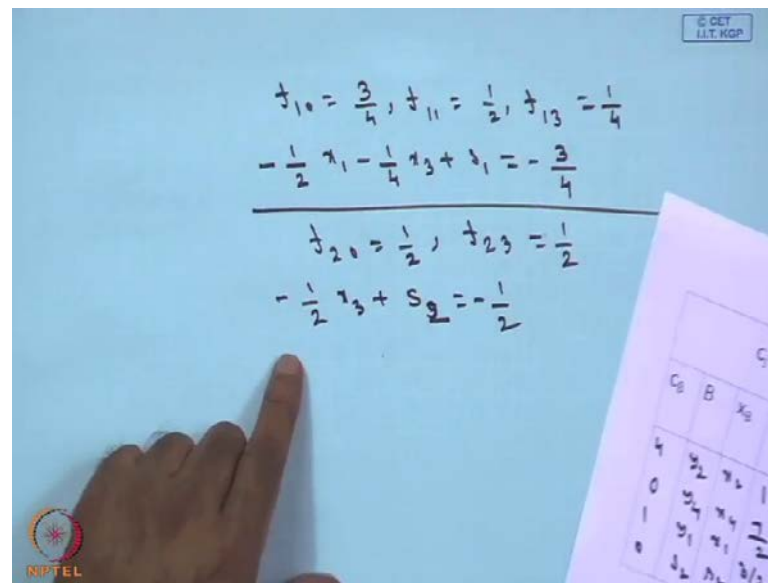 © CET
I.I.T. KGP
f₁₀ = 3/4, f₁₁ = 1/2, f₁₃ = 1/4
- 1/2 x₁ - 1/4 x₃ + s₁ = - 3/4
f₂₀ = 1/2, f₂₃ = 1/2
- 1/2 x₃ + S₂ = - 1/2
C_B B X_B
4 y₂ x₂ 1
0 y₄ x₄ 7/2
1 y₁ x₁
0 s₂ s₂
NPTEL